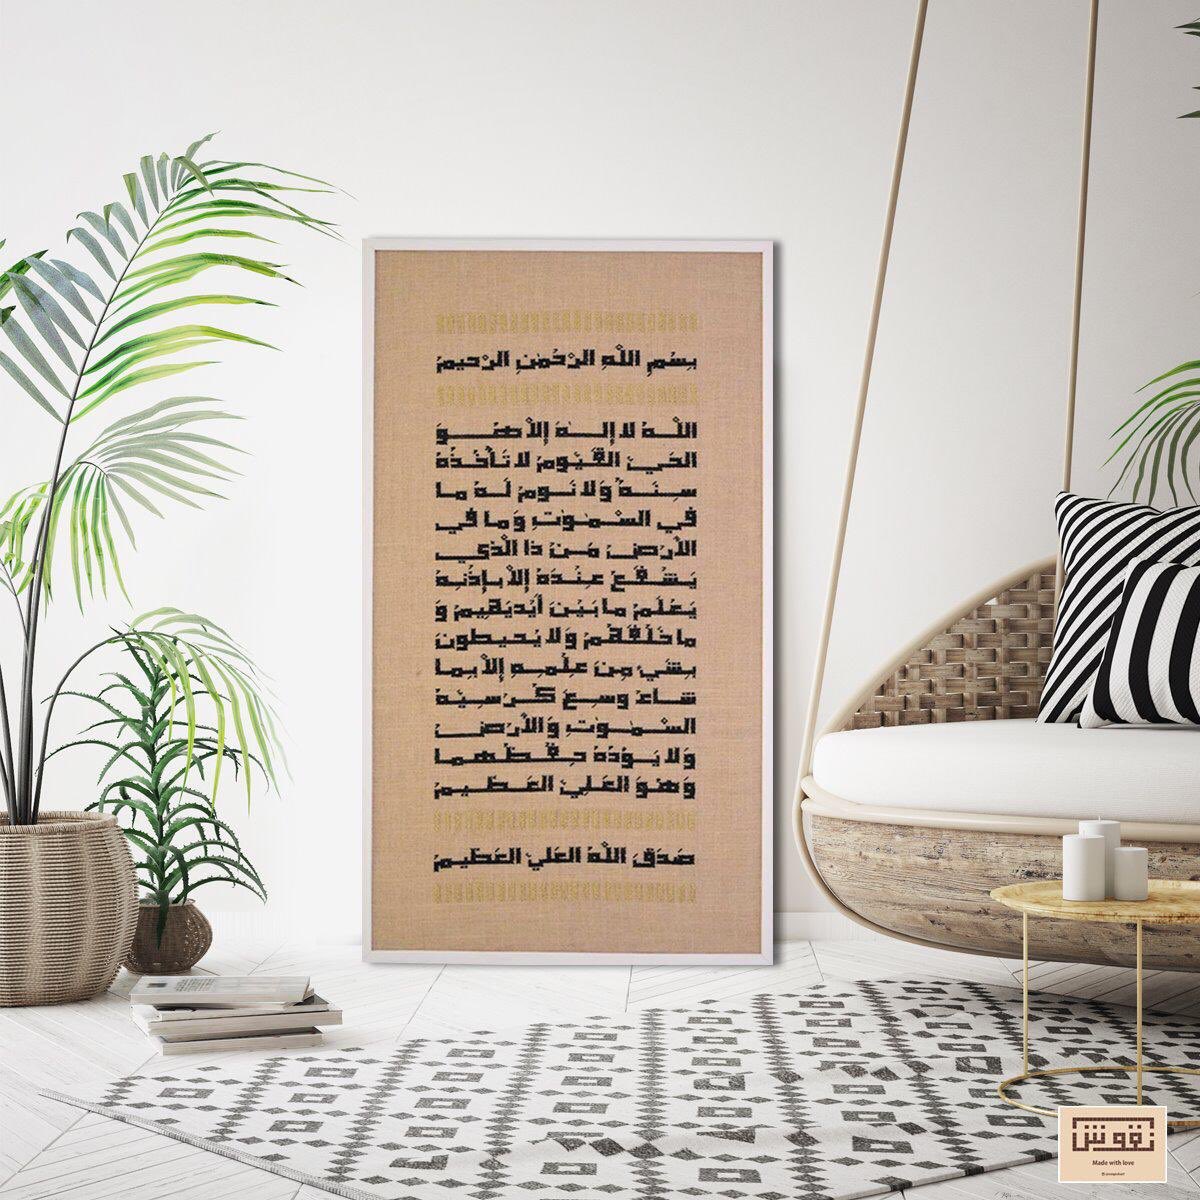 بِسْمِ اللّٰهِ الرَّحْمٰنِ الرَّحیمْ
اَللّٰهُ لا اِلٰهَ اِلّا هُوَ
الحَیُّ القَیّومُ لا تَأخُذُهُ
سِنَةٌ وَلا نَومٌ لَهُ ما
فی السَّمٰوٰتِ وَما فی
الأرضِ مَن ذَا الَّذی
یَشْفَعُ عِنْدَهُ اِلّا بِإذْنِهِ
یَعْلَمُ ما بَیْنَ أیْدیهِمْ وَ
ما خَلْفَهُمْ وَلا یُحیطونَ
بِشَیءٍ مِنْ عِلْمِهِ اِلّا بِما
شاءَ وَسِعَ كُرْسِیُّهُ
السَّمٰوٰتِ وَالأرْضَ
وَلا یَؤدُهُ حِفْظُهُما
وَهُوَ العَلیُّ العَظیمُ
صَدَقَ اللّٰهُ العَلیُّ العَظیمْ
نقوش
Made with love